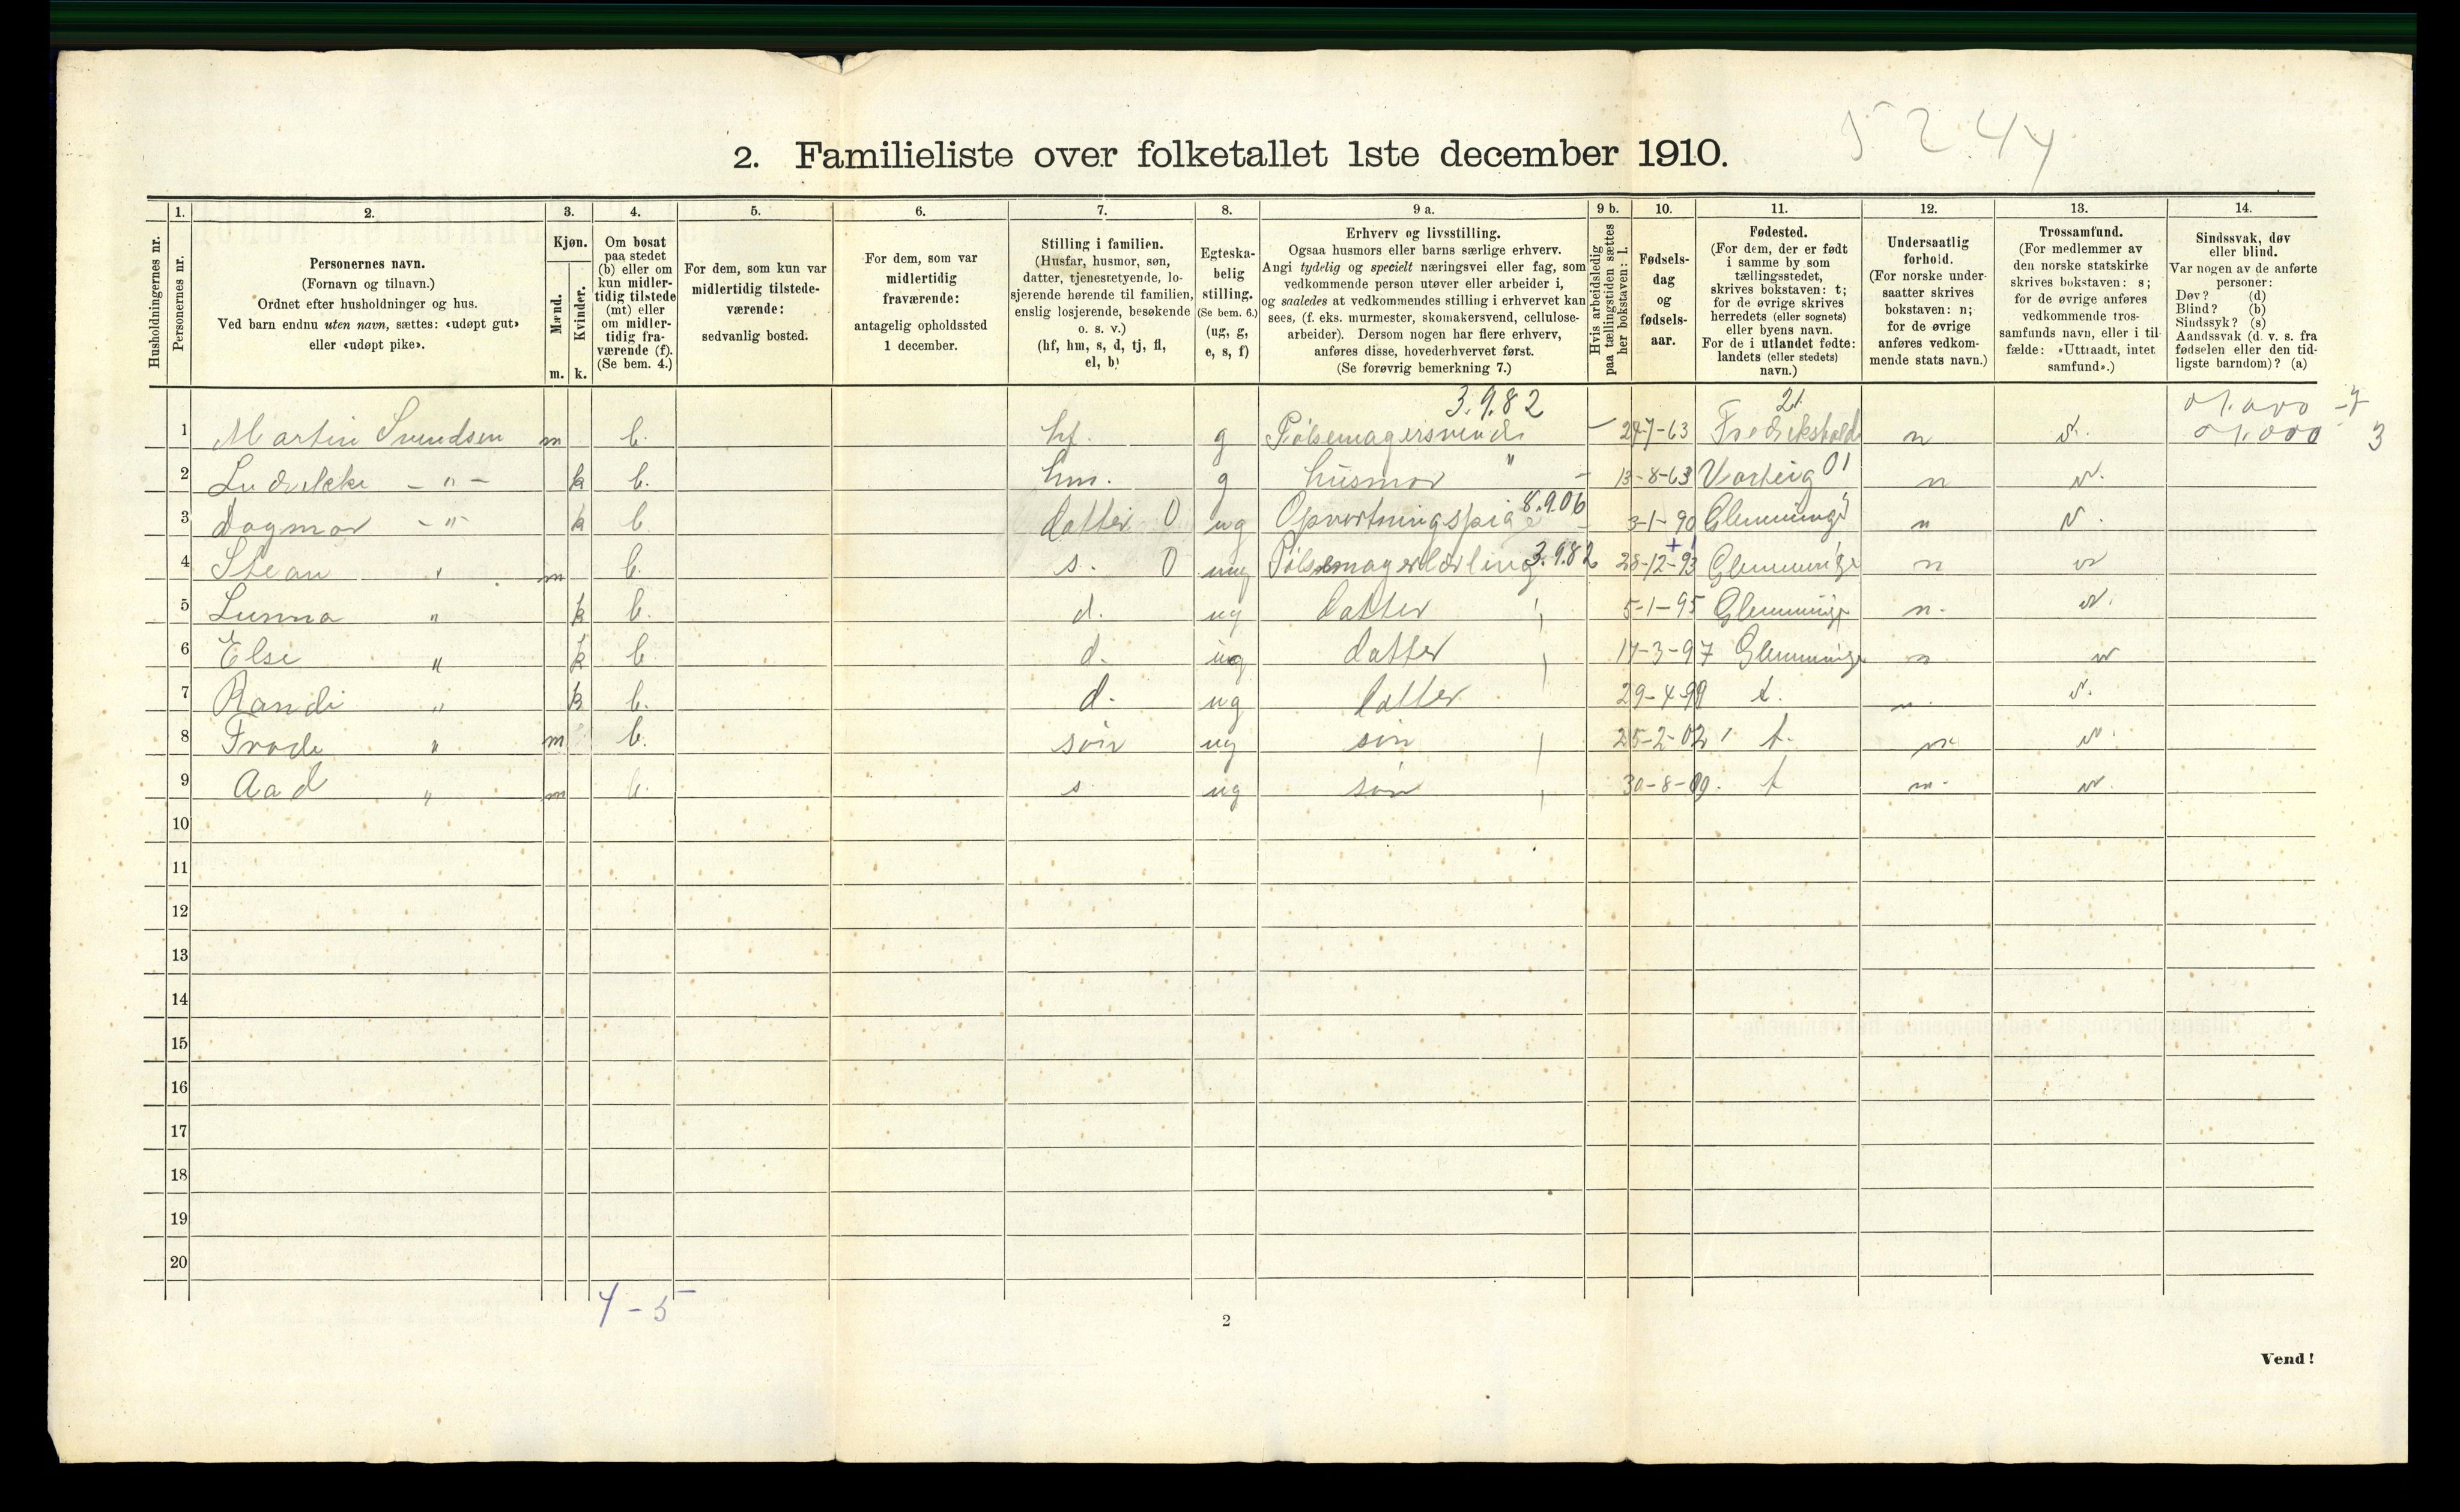 5244
2. Familieliste over folketallet 1ste december 1910.
Husholdningernes nr.
1. Personernes nr.
2. Personernes navn.
(Fornavn og tilnavn.)
Ordnet efter husholdninger og hus.
Ved barn endnu uten navn, sættes: «udøpt gut»
eller «udøpt pike».
3. Kjøn.
Mænd. m.
Kvinder. k.
4. Om bosat
paa stedet
(b) eller om
kun midler-
tidig tilstede
(mt) eller
om midler-
tidig fra-
værende (f).
(Se bem. 4.)
5. For dem, som kun var
midlertidig tilstede-
værende:
sedvanlig bosted.
6. For dem, som var
midlertidig
fraværende:
antagelig opholdssted
1 december.
7. Stilling i familien.
(Husfar, husmor, søn,
datter, tjenestetyende, lo-
sjerende hørende til familien,
enslig losjerende, besøkende
o. s. v.)
(hf, hm, s, d, tj, fl,
el, b)
8. Egteska-
belig
stilling.
(Se bem. 6.)
(ug, g,
e, s, f)
9 a. Erhverv og livsstilling.
Ogsaa husmors eller barns særlige erhverv.
Angi tydelig og specielt næringsvei eller fag, som
vedkommende person utøver eller arbeider i,
og saaledes at vedkommendes stilling i erhvervet kan
sees, (f. eks. murmester, skomakersvend, cellulose-
arbeider). Dersom nogen har flere erhverv,
anføres disse, hovederhvervet først.
(Se forøvrig bemerkning 7.)
9 b. Hvis arbeidsledig
paa tællingstiden sættes
her bokstaven: l.
10. Fødsels-
dag
og
fødsels-
aar.
11. Fødested.
(For dem, der er født
i samme by som
tællingsstedet,
skrives bokstaven: t;
for de øvrige skrives
herredets (eller sognets)
eller byens navn.
For de i utlandet fødte:
landets (eller stedets)
navn.)
12. Undersaatlig
forhold.
(For norske under-
saatter skrives
bokstaven: n;
for de øvrige
anføres vedkom-
mende stats navn.)
13. Trossamfund.
(For medlemmer av
den norske statskirke
skrives bokstaven: s;
for de øvrige anføres
vedkommende tros-
samfunds navn, eller i til-
fælde: «Uttraadt, intet
samfund».)
14. Sindssvak, døv
eller blind.
Var nogen av de anførte
personer:
Døv? (d)
Blind? (b)
Sindssyk? (s)
Aandssvak (d. v. s. fra
fødselen eller den tid-
ligste barndom)? (a)
3.9.82 21
1 Martin Svendsen m b. hf. g Pølsemagersvend - 24-7-63 Fredrikshald n s. 3
2 Ludvikke - " - k b. hm. g husmor " - 13-8-63 Varteig 01 n s.
3 Dagmar - " - k b datter 0 ug Opvartningspige 8.9.06 - 3-1-90 Glemminge n s.
4 " m b. s. 0 ug Pølsemagerlærling 3.9.82 28-12-93 Glemminge n s
5 " k b. d. ug datter 5-1-95 Glemminge n. s.
6 Else " k b d. ug datter 17-3-97 Glemminge n s
7 Randi " k b. d. ug datter 29-4-99 t. n s.
8 Frode " m b. søn ug søn 25-2-02 t. n s.
9 Aad " m b. s ug søn 30-8-09. t n. s.
10
11
12
13
14
15
16
17
18
19
20
4-5
2
Vend!